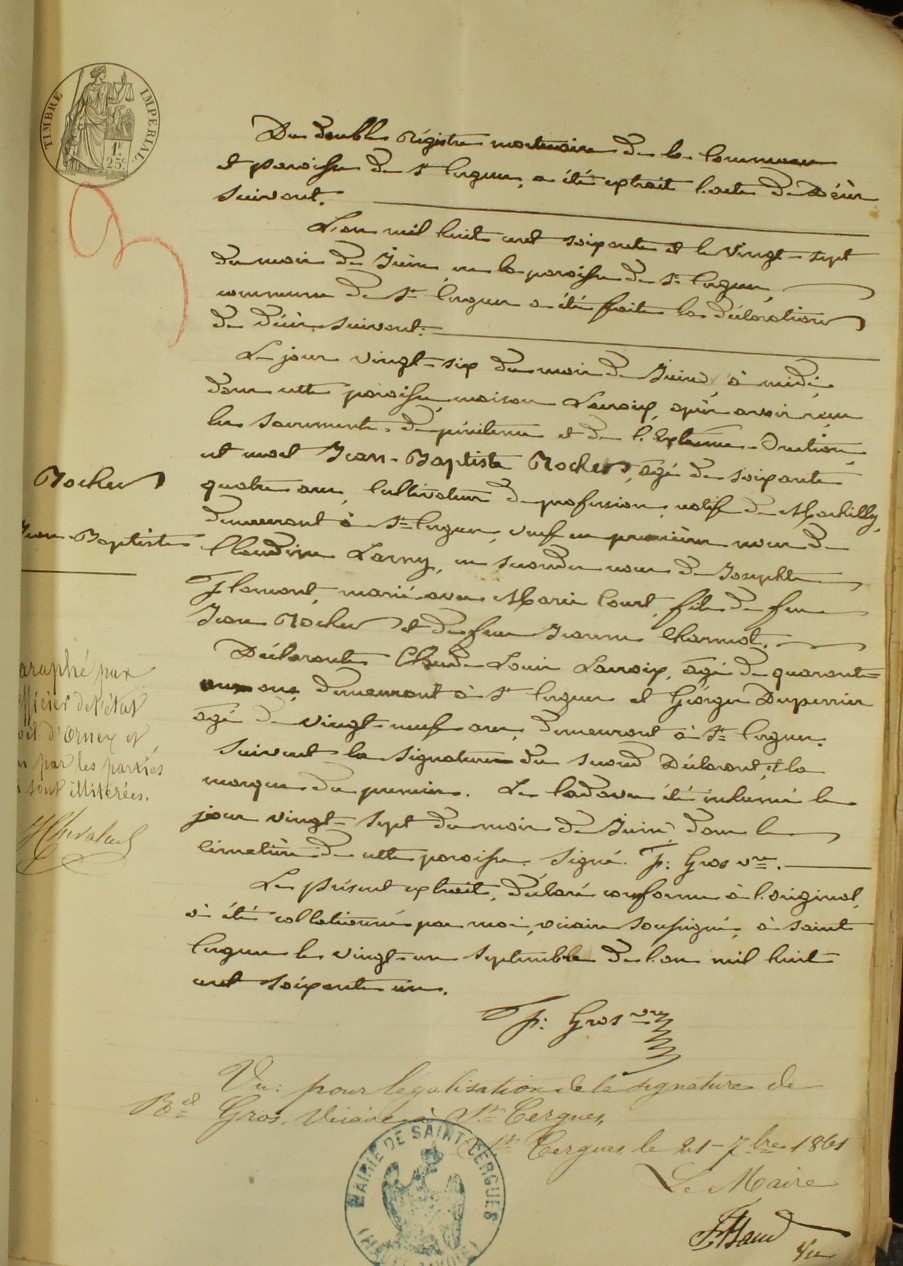 TIMBRE IMPERIAL
1F.
25c.
Du double Régistre mortuaire de la Commune
et paroisse de St Cergues, a été extrait l'acte de Décès
suivant.
L'an mil huit cent soixante et le Vingt-sept
du mois de Juin en la paroisse de St Cergues,
commune de St Cergues a été faite la déclaration
de décès suivant:
Le jour vingt-six du mois de Juin, à midi
dans cette paroisse, maison Lavoix, après avoir reçu
les sacrements de pénitence et de l'Extrême-Onction,
est mort Jean-Baptiste Rocher, âgé de soixante
quatre ans, Cultivateur de profession, natif de Machilly,
demeurant à St Cergues, veuf en première noces de
Claudine Larny, en secondes noces de Josephte
Flamont, marié avec Marie Court, fils de feu
Jean Rocher et de feue Jeanne Charmot.
Déclarants Claude Louis Lavoix, âgé de quarante-
ans, demeurant à St Cergues et Géorges Duperrier
âgé de vingt-neuf ans, demeurant à St Cergues.
Suivent la signature du second Déclarant, et la
marque du premier. Le Cadavre a été inhumé le
jour vingt-sept du mois de Juin dans le
cimetière de cette paroisse. Signé: F: Gros vre.
Le présent extrait, déclaré conforme à l'original,
a été collationné par moi, vicaire soussigné, à saint
Cergues le vingt-un septembre de l'an mil huit
cent soixante un.
F: Gros vre
Rocher
Jean-Baptiste
paraphé par
officier de l'état
d'Ornex et
par les parties
sont illitérées.
Chevalier
Vu: pour légalisation de la signature de
Rd Gros, Vicaire à St Cergues,
St Cergues le 21-7bre 1861
Le Maire
MAIRIE DE SAINT-CERGUES